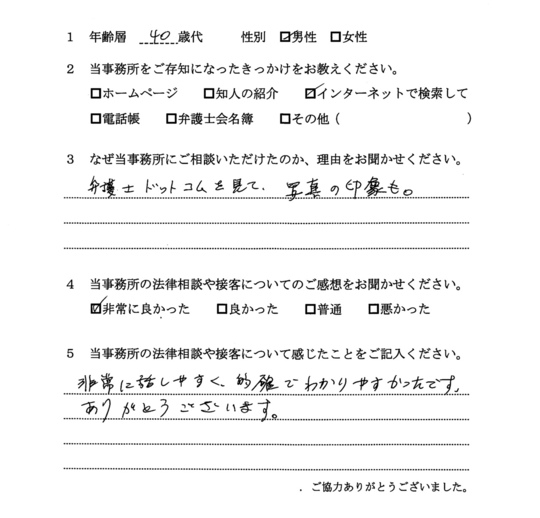 1 年齢層 40歳代 性別 ☑男性 □女性
2 当事務所をご存知になったきっかけをお教えください。
□ホームページ □知人の紹介 ☑インターネットで検索して
□電話帳 □弁護士会名簿 □その他（ ）
3 なぜ当事務所にご相談いただけたのか、理由をお聞かせください。
弁護士ドットコムを見て、写真の印象も。
4 当事務所の法律相談や接客についてのご感想をお聞かせください。
☑非常に良かった □良かった □普通 □悪かった
5 当事務所の法律相談や接客について感じたことをご記入ください。
非常に話しやすく、的確でわかりやすかったです。
ありがとうございます。
．ご協力ありがとうございました。